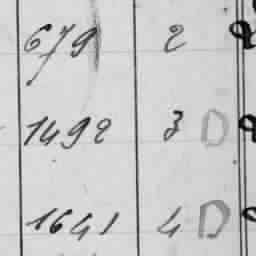 679 2
1492 3 D
1641 4 D